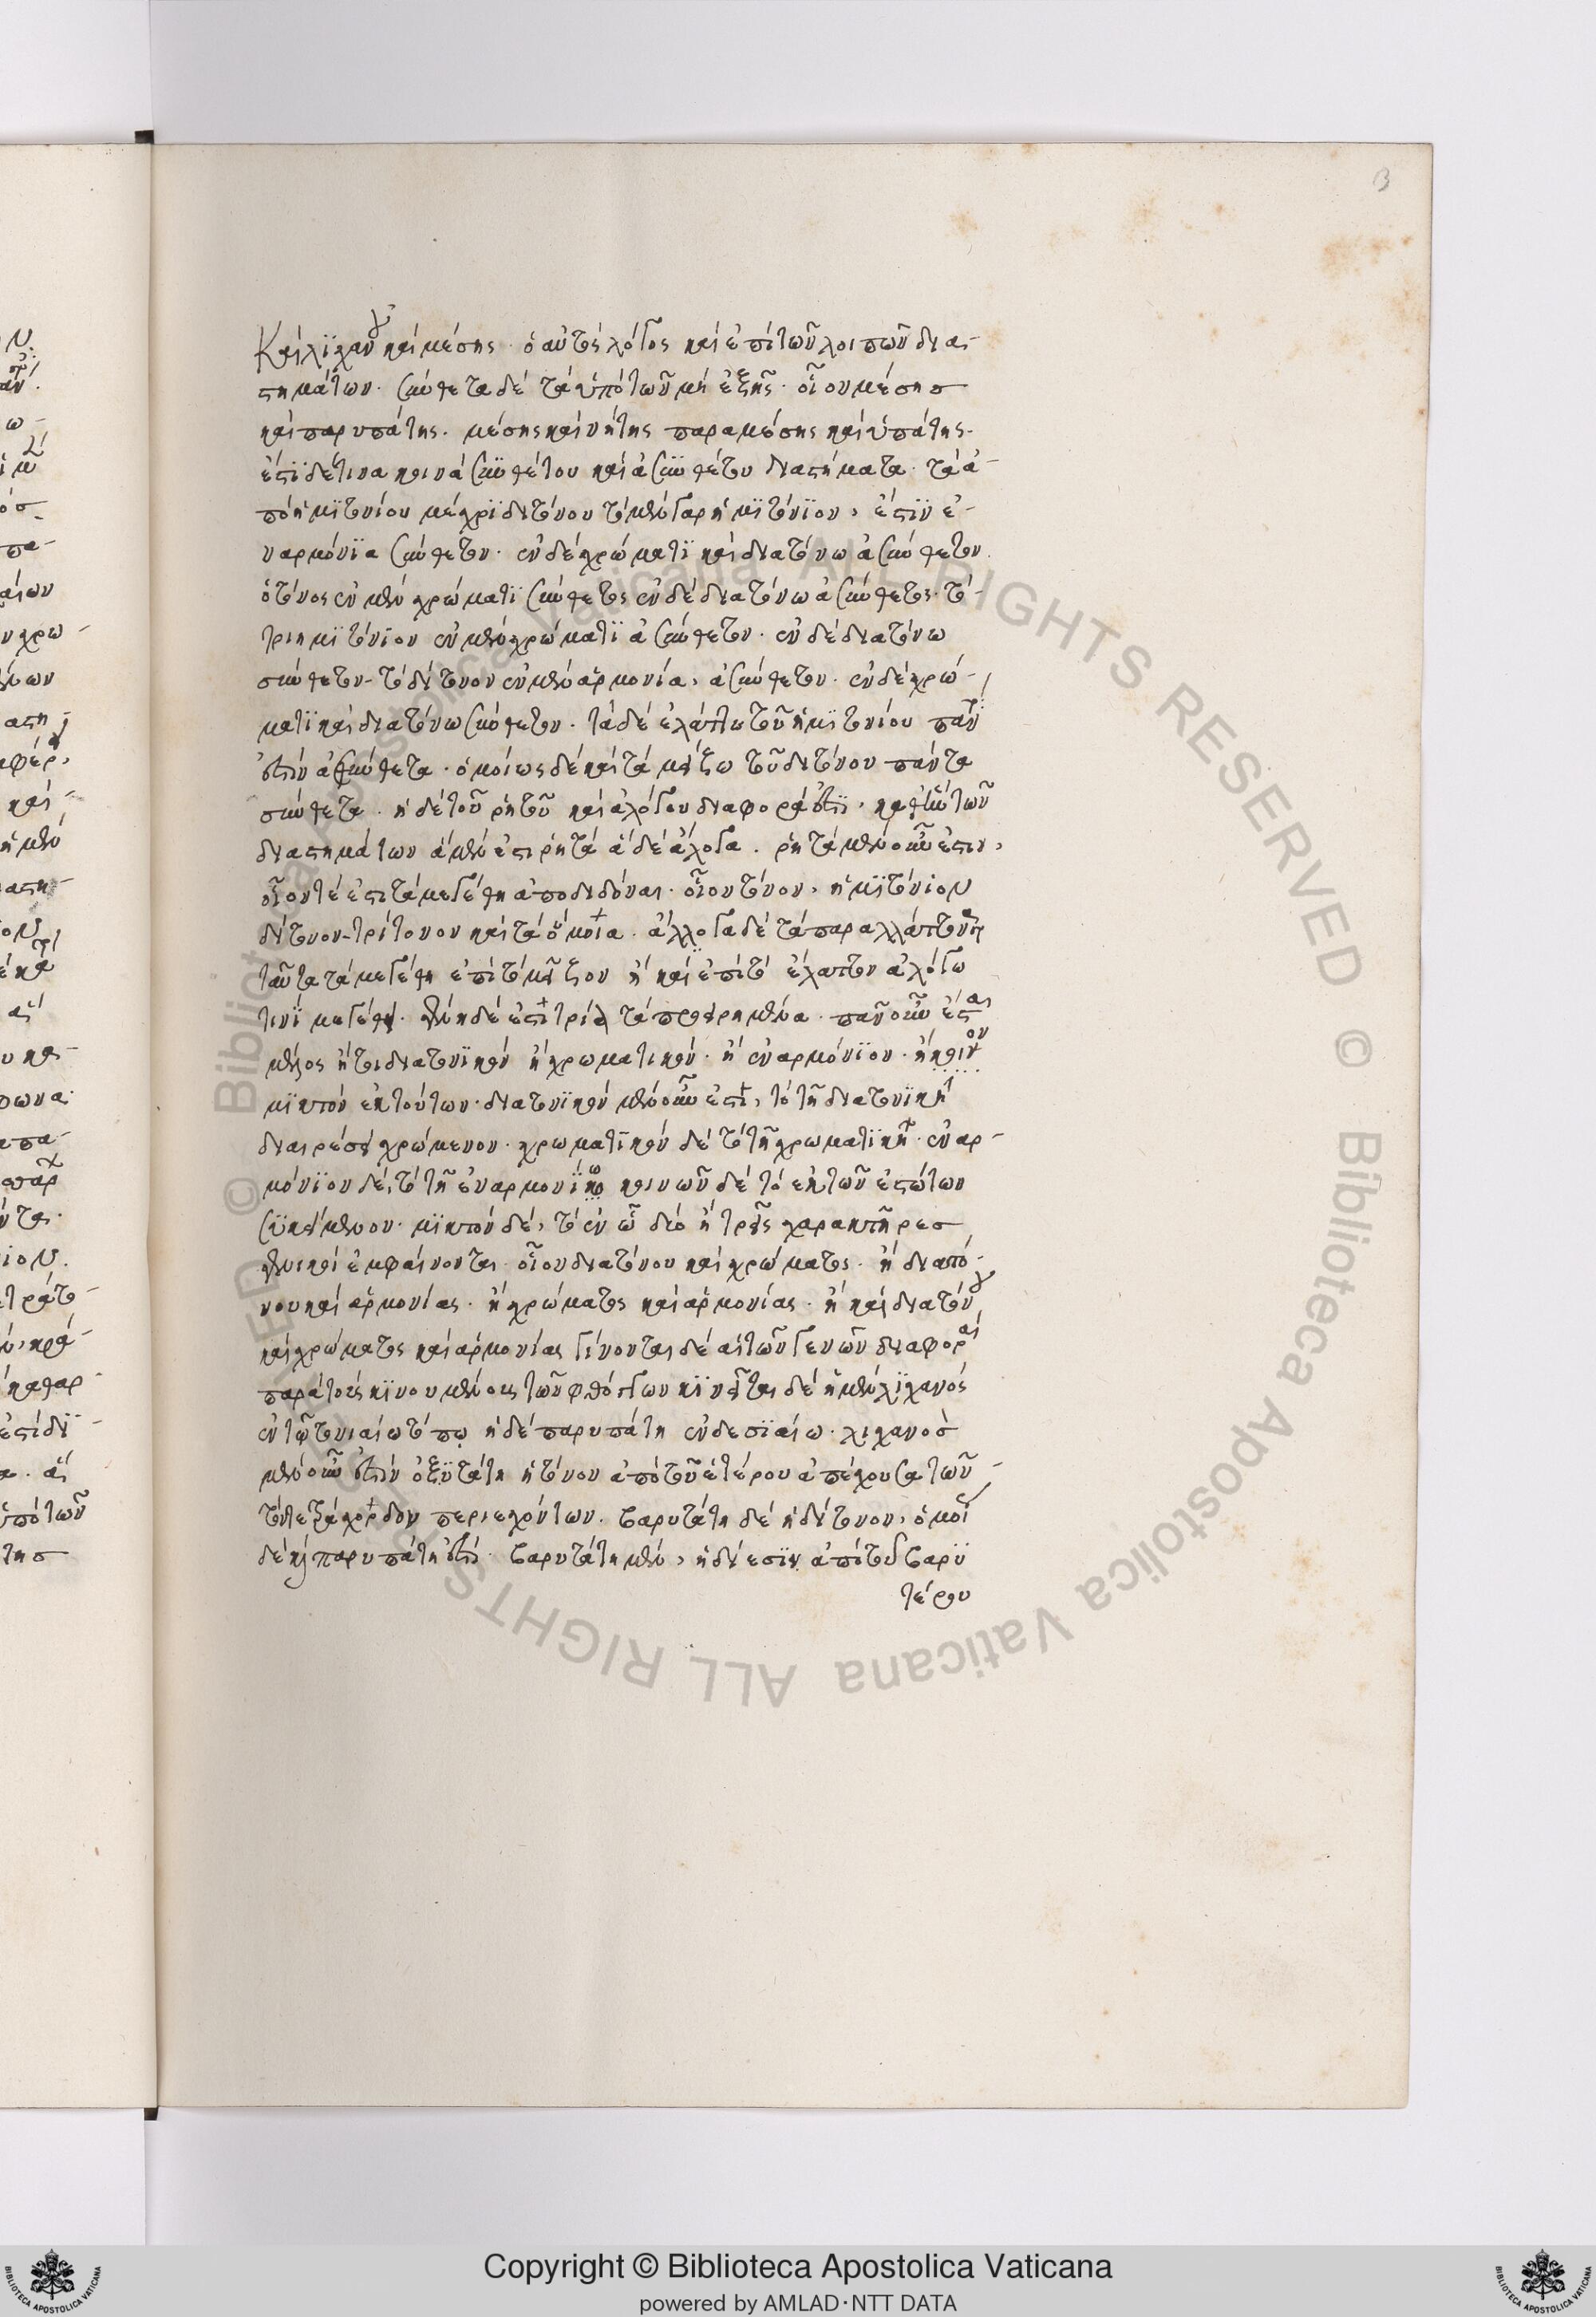 Καὶ λϊχανοῦ καὶ μέσης· ὁ αὐτὸς λόγος καὶ ἐπὶ τῶν λοιπῶν δϊας-
τημάτων· σύνθετα δὲ τὰ ὑπὸ τῶν μὴ ἑξῆς· οἷον μέσησ
καὶ παρυπάτης· μέσης καὶ νήτης παραμέσης καὶ ὑπάτης·
ἐστϊ δέ τινα κοινὰ συνθέτου καὶ ἀσυνθέτου διαστήματα· τὰ ἀ-
πὸ ἡμϊτονίου μέχρϊ διτόνου τὸ μὲν γὰρ ἡμϊτόνϊον, ἐστϊν ἐ-
ναρμόνϊα σύνθετον· ἐν δὲ χρώματϊ καὶ διατόνω ἀσύνθετον.
ὁ τόνος ἐν μὲν χρώματϊ σύνθετος ἐν δὲ διατόνω ἀσύνθετος· τὸ
τριημϊτόνϊον ἐν μὲν χρώματϊ ἀσύνθετον· ἐν δὲ διατόνω
σύνθετον· τὸ δίτονον ἐν μὲν ἁρμονία, ἀσύνθετον· ἐν δὲ χρώ-
ματϊ καὶ διατόνω σύνθετον· τὰ δὲ ἐλάττω τοῦ ἡμϊτονίου πάν
ἐστὶν ἀσύνθετα· ὁμοίως δὲ καὶ τὰ μείζω τοῦ διτόνου πάντα
σύνθετα· ἡ δὲ τοῦ ῥητοῦ καὶ ἀλόγου διαφορά ἐστϊ, καθ' ἣν τῶν
διαστημάτων ἁ μὲν ἐστι ῥητὰ ἁ δὲ ἄλογα· ῥητὰ μὲν οὖν ἐστιν,
οἷον τέ ἐστι τὰ μεγέθη ἀποδιδόναι· οἷον τόνον, ἡμϊτόνιον
δίτονον· τρίτονον καὶ τὰ ὅμοια· ἄλλογα δὲ τὰ παραλλάττοντα
ταῦτα τὰ μεγέθη ἐπὶ τὸ μεῖζον ἢ καὶ ἐπὶ τὸ ἔλαττον ἀλόγω
τινϊ μεγέθει· γένη δέ ἐστι τρία τὰ προειρημένα· πᾶν οὖν ἔσται
μέλος ἤτοι διατονϊκὸν ἢ χρωματικὸν· ἢ ἐναρμόνϊον· ἢ κοινὸν
μϊκτὸν ἐκ τούτων· διατονϊκὸν μὲν οὖν ἐστι, τὸ τῆ διατονϊκῆ
διαιρέσει χρώμενον· χρωματϊκὸν δὲ τὸ τῆ χρωματϊκῆ· ἐναρ-
μόνϊον δὲ, τὸ τῆ ἐναρμονίω κοινῶν δὲ τὸ ἐκ τῶν ἑστώτων
συγκείμενον· μϊκτὸν δὲ, τὸ ἐν ὧ δύο ἢ τρεῖς χαρακτῆρεσ
γενικοὶ ἐμφαίνονται· οἷον διατόνου καὶ χρώματος· ἢ διατό-
νου καὶ ἁρμονίας· ἢ χρώματος καὶ ἁρμονίας· ἢ καὶ διατόνου
καὶ χρώματος καὶ ἁρμονίας γίνονται δὲ αἱ τῶν γενῶν διαφοραὶ
παρὰ τοὺς κϊνουμένους τῶν φθόγγων κϊνεῖται δὲ ἡ μὲν λϊχανὸς
ἐν τῶ τονιαίω τόπω ἡ δὲ παρυπάτη ἐν δεσϊαίω· λιχανοσ
μὲν οὖν ἐστὶν ὀξϋτάτη ἡ τόνον ἀπὸ τοῦ ἑτέρου ἀπέχουσα τῶν
τὸ τετράχορδον περιεχόντων· βαρυτάτη δὲ ἡ δίτονον, ὁμοί
δὲ καὶ παρυπάτη ἐστὶ· βαρυτάτη μὲν, ἡ δίεσϊν ἀπὸ τοῦ βαρϋ
τέρου
Copyright © Biblioteca Apostolica Vaticana
powered by AMLAD·NTT DATA